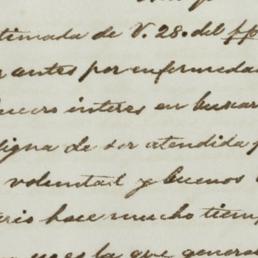 timada de V. 28. del pp
antes por enfermeda
interes en buscar
digna de ser atendida
voluntad y buenos
hace mucho tiem
es la que genera